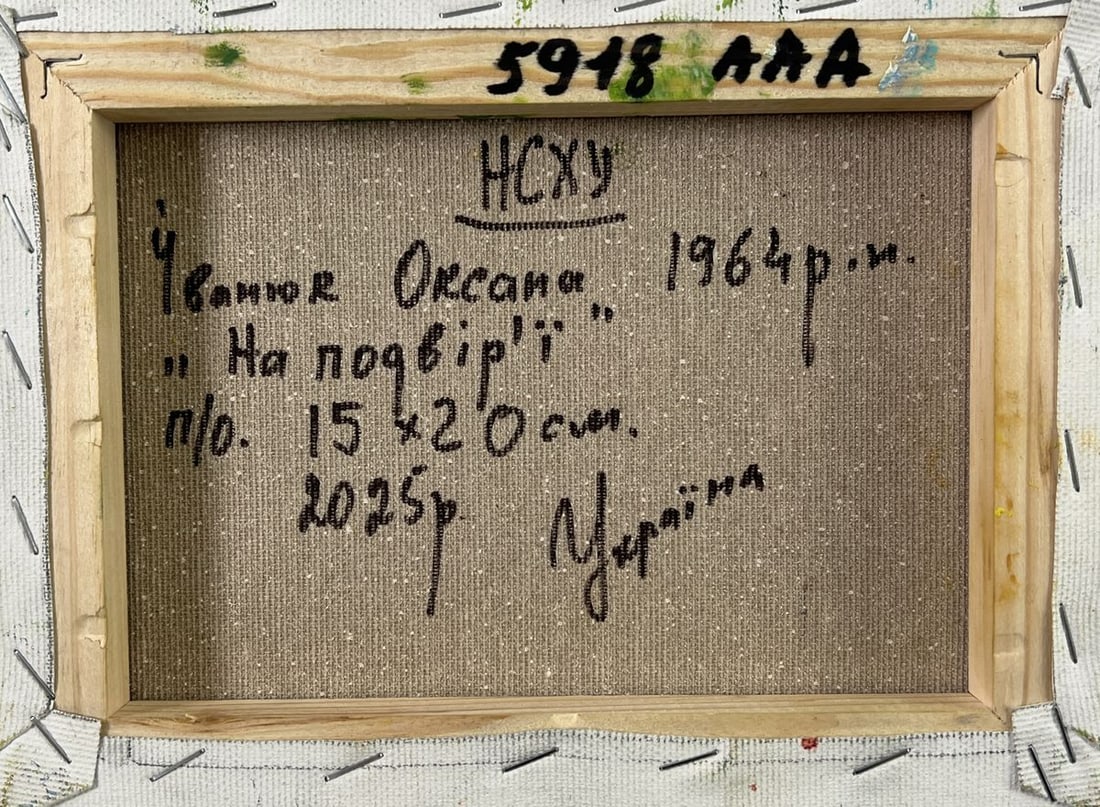 5918 AAA
НСХУ
Іванюк Оксана 1964р.н.
„На подвір'ї"
п/о. 15 x 20 см.
2025р. Україна